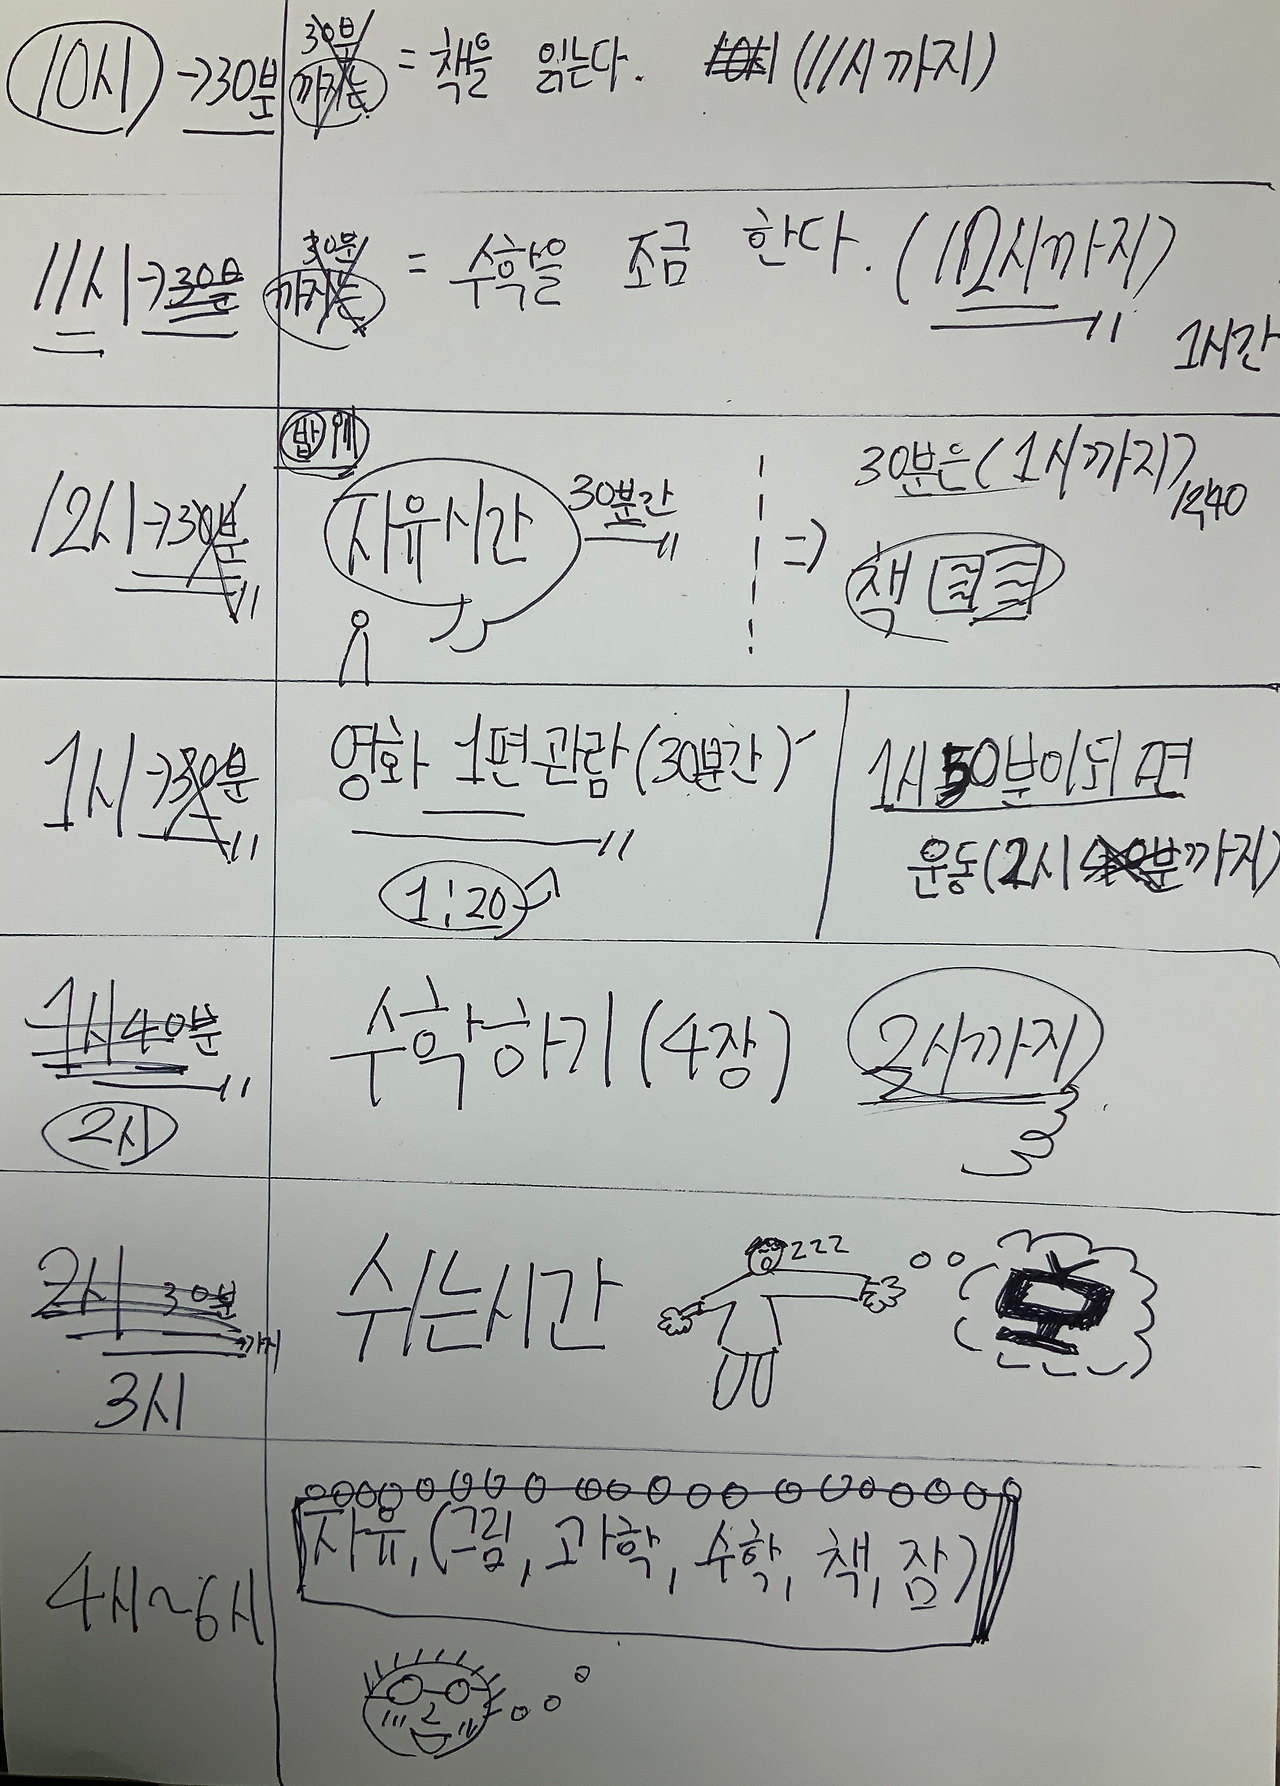 10시 →30분
30분 까지는 = 책을 읽는다. 10시 (11시까지)
11시→30분
30분 까지는 = 수학을 조금 한다. (12시까지)
1시간
12시→30분
밥
자유시간 30분간 ⇒ 30분은(1시까지) 12:40
책
1시→30분
영화 1편관람(30분간)
1:20
1시50분이되면
운동(2시 분까지)
1시40분
2시
수학하기(4장) 2시까지
2시 30분
까지
3시
쉬는시간 zzz
4시~6시
자유,(그림, 과학, 수학, 책, 잠)